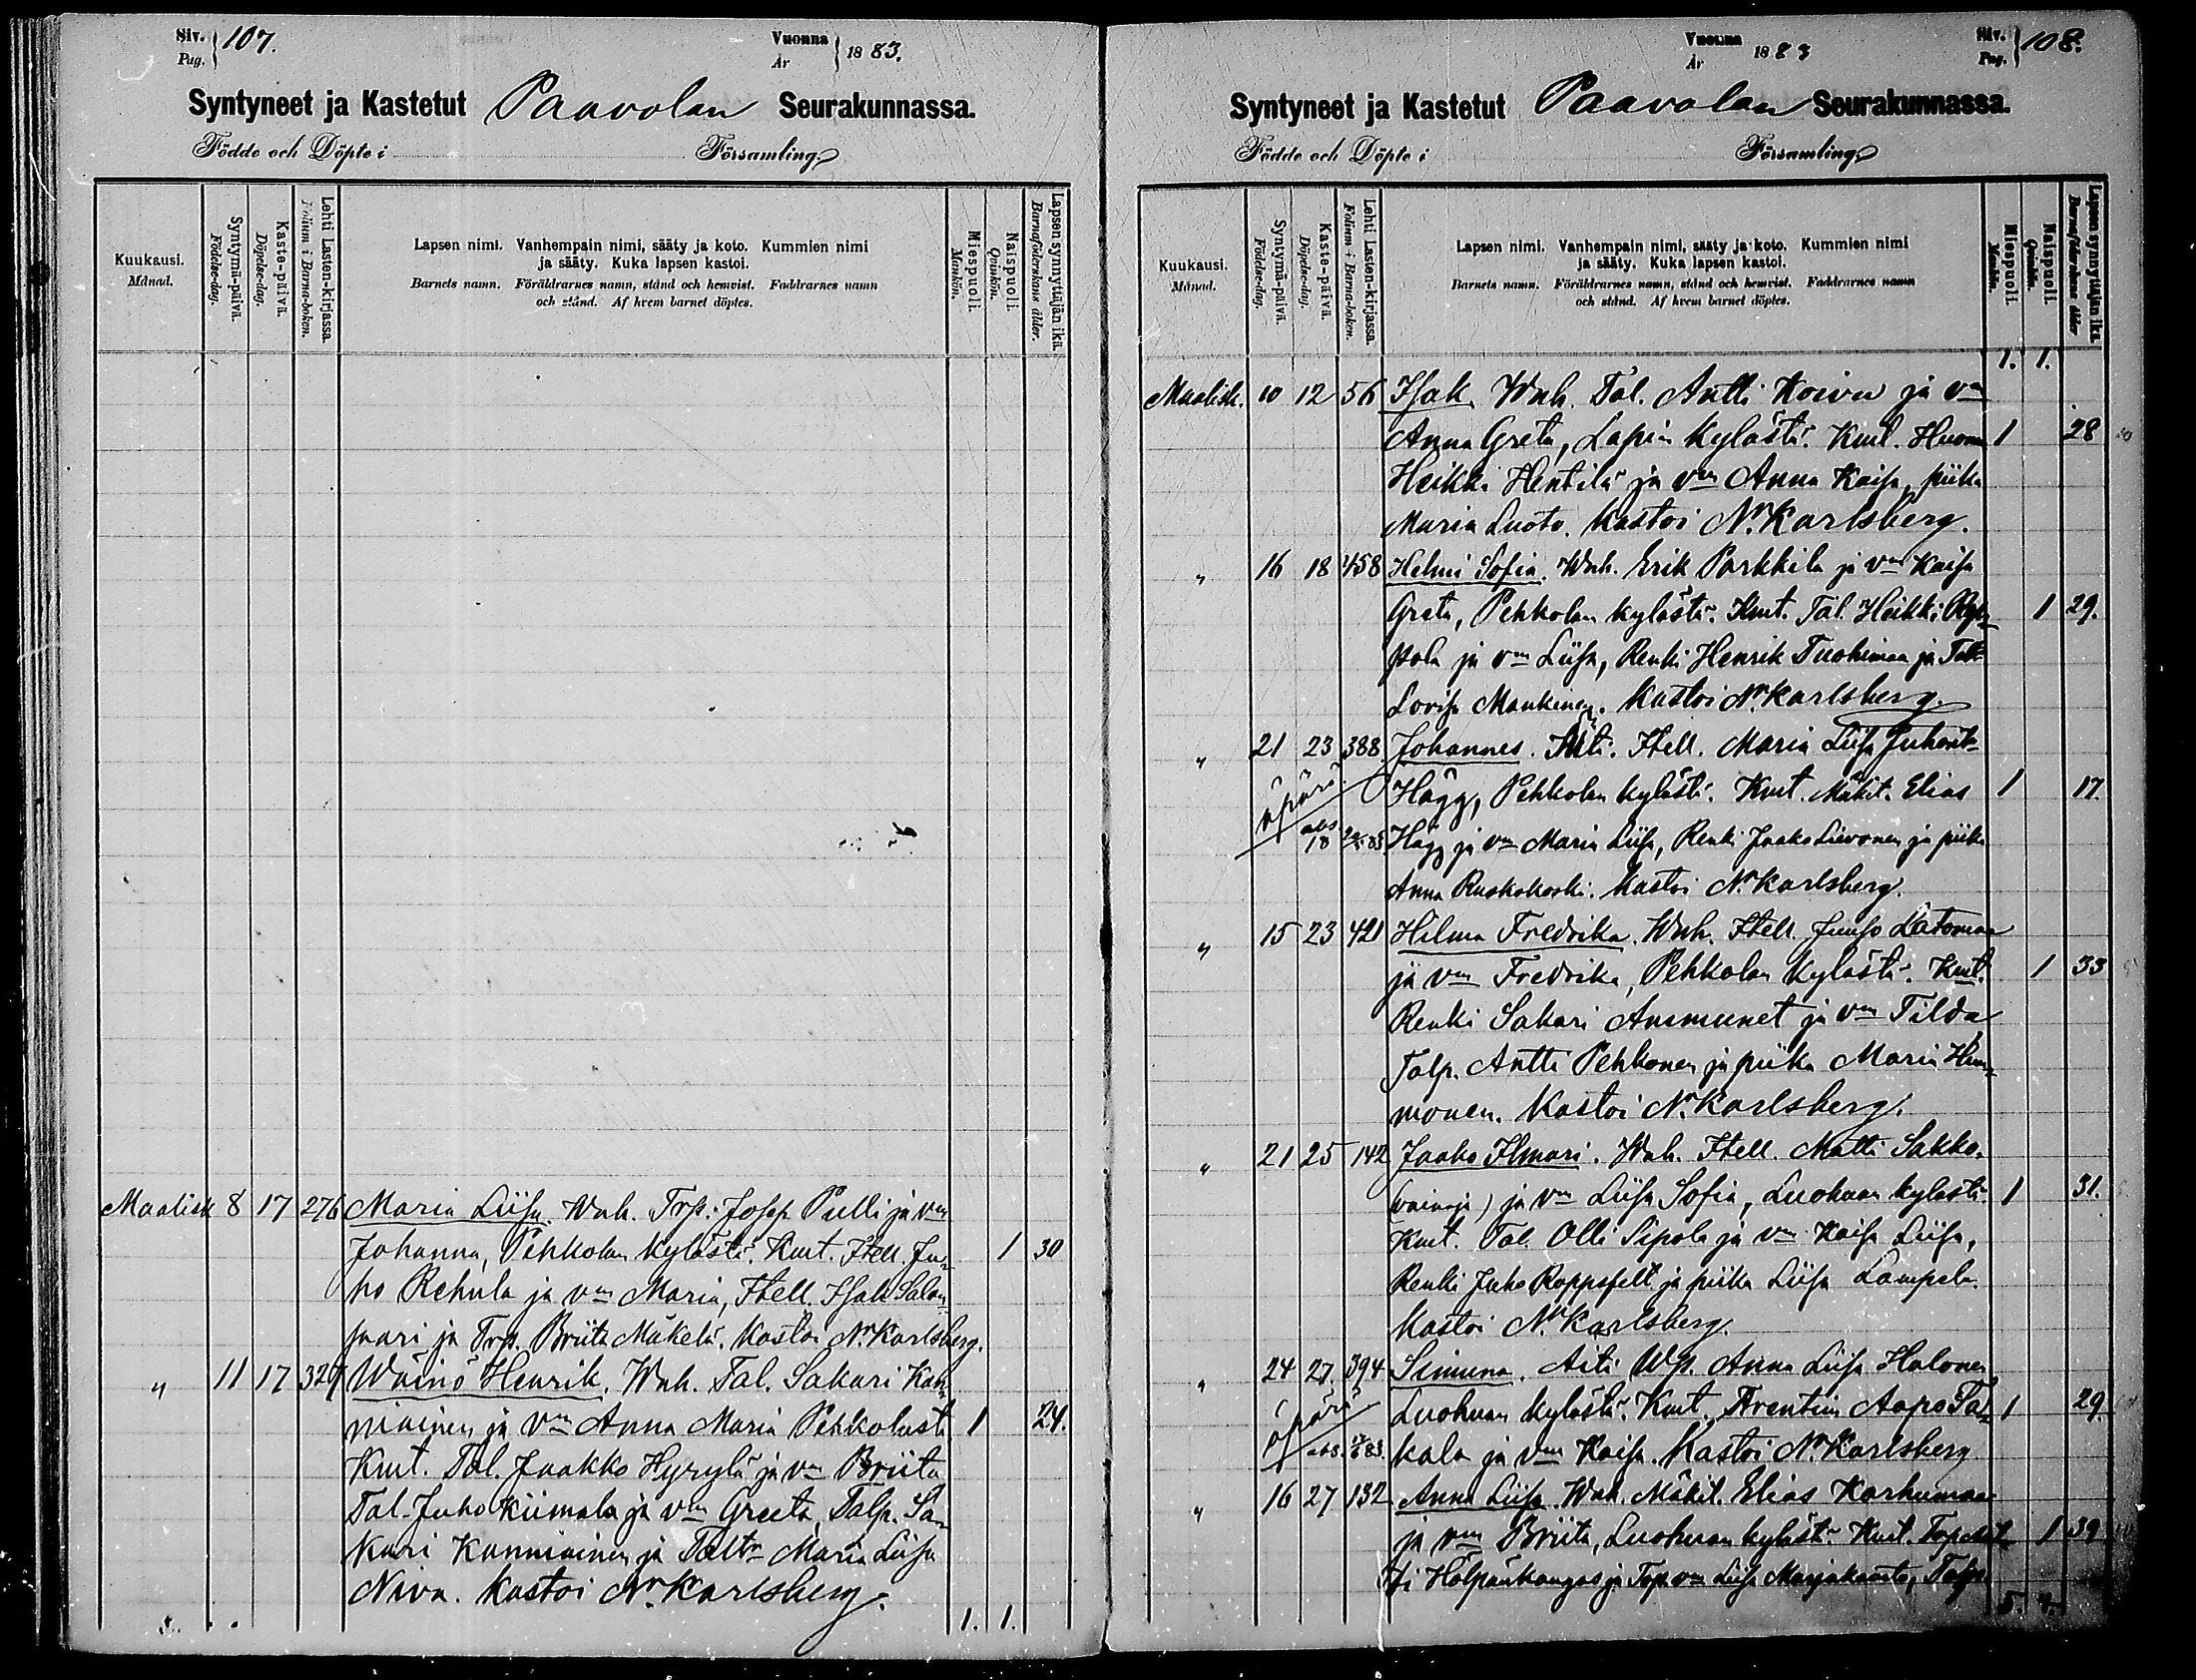 Siv. Pag. 107.
Vuonna År 1883.
Syntyneet ja Kastetut Paavolan Seurakunnassa.
Födde och Döpte i Församling.
Kuukausi. Månad.
Syntymä-päivä. Födelse-dag.
Kaste-päivä. Döpelse-dag.
Lehti Lasten-kirjassa. Folium i Barna-boken.
Lapsen nimi. Vanhempain nimi, sääty ja koto. Kummien nimi
ja sääty. Kuka lapsen kastoi.
Barnets namn. Föräldrarnes namn, stånd och hemvist. Faddrarnes namn
och stånd. Af hvem barnet döptes.
Miespuoli. Mankön.
Naispuoli. Qvinkön.
Lapsen synnyttäjän ikä. Barnaföderskans ålder.
Maalisk 8 17 276 Maria Liisa. Wnh. Trp. Josep Pulli ja vm
Johanna, Pehkolan kylästä. Kmt. Itell. Ju- 1 30
ho Rehula ja vm Maria, Itell. Isak Salon-
saari ja Trp. Briita Mäkelä. Kastoi Nr. Karlsberg.
" 11 17 327 Wäinö Henrik. Wnh. Tal. Sakari Kan-
niainen ja vm Anna Maria Pehkolasta 1 24.
Kmt. Tal. Jaakko Hyrylä ja vm Briita
Tal. Juho Kiimala ja vm Greeta, Talp. Sa-
kari Kanniainen ja Taltr Maria Liisa
Niva. Kastoi Nr. Karlsberg.
1. 1.
Vuonna År 1883
Siv. Pag. 108.
Syntyneet ja Kastetut Paavolan Seurakunnassa.
Födde och Döpte i Församling.
Kuukausi. Månad.
Syntymä-päivä. Födelse-dag.
Kaste-päivä. Döpelse-dag.
Lehti Lasten-kirjassa. Folium i Barna-boken.
Lapsen nimi. Vanhempain nimi, sääty ja koto. Kummien nimi
ja sääty. Kuka lapsen kastoi.
Barnets namn. Föräldrarnes namn, stånd och hemvist. Faddrarnes namn
och stånd. Af hvem barnet döptes.
Miespuoli. Mankön.
Naispuoli. Qvinkön.
Lapsen synnyttäjän ikä. Barnaföderskans ålder
1. 1.
Maalisk. 10 12 56 Isak. Wnh. Tal. Antti Koivu ja vm
Anna Greta, Lapin kylästä. Kmt. Huonem 1 28
Heikki Hentilä ja vm Anna Kaisa, piika
Maria Luoto. Kastoi Nr. Karlsberg.
" 16 18 458 Helmi Sofia. Wnh. Erik Parkkila ja vm Kaisa
Greta, Pehkolan kylästä. Kmt. Tal. Heikki 1 29.
ja vm Liisa, Renki Henrik Tuohimaa ja
Lovisa Mankinen. Kastoi Nr Karlsberg.
" 21 23 388 Johannes. Äiti. Itell. Maria Liisa
äpärä Hägg, Pehkolan kylästä. Kmt. Mäkit. Elias 1 17.
abs. 18 Hägg ja vm Maria Liisa, Renki Jaako Lievonen ja piika
Anna Ruskokoski. Kastoi Nr Karlsberg.
" 15 23 421 Hilma Fredrika. Wnh. Itell. Juuso Latomaa
ja vm Fredrika, Pehkolan kylästä. Kmt. 1 33
Renki Sakari Ansmunet ja vm Tilda
Talp. Antti Pehkonen ja piika Maria Hum-
monen. Kastoi Nr. Karlsberg.
" 21 25 142 Jaako Ilmari. Wnh. Itell. Matti Sakko.
(vainaja) ja vm Liisa Sofia, Luohuan kylästä 1 31.
Kmt. Tal. Olli Sipola ja vm Kaisa Liisa,
Renki Juho Roppsfelt ja piika Liisa Lampela.
Kastoi Nr. Karlsberg.
" 24 27. 394 Simuna. Äiti Anna Liisa Halonen
äpärä Luohuan kylästä. Kmt. Arentin Aapo Ta- 1 29.
abs. kala ja vm Kaisa. Kastoi Nr Karlsberg.
" 16 27 132 Anna Liisa. Wnh. Mäkit. Elias Karhumaa
ja vm Briita, Luohuan kylästä. Kmt. Top. 1 39
ja Top. vm Liisa Marjakaarto, Talp.
5.